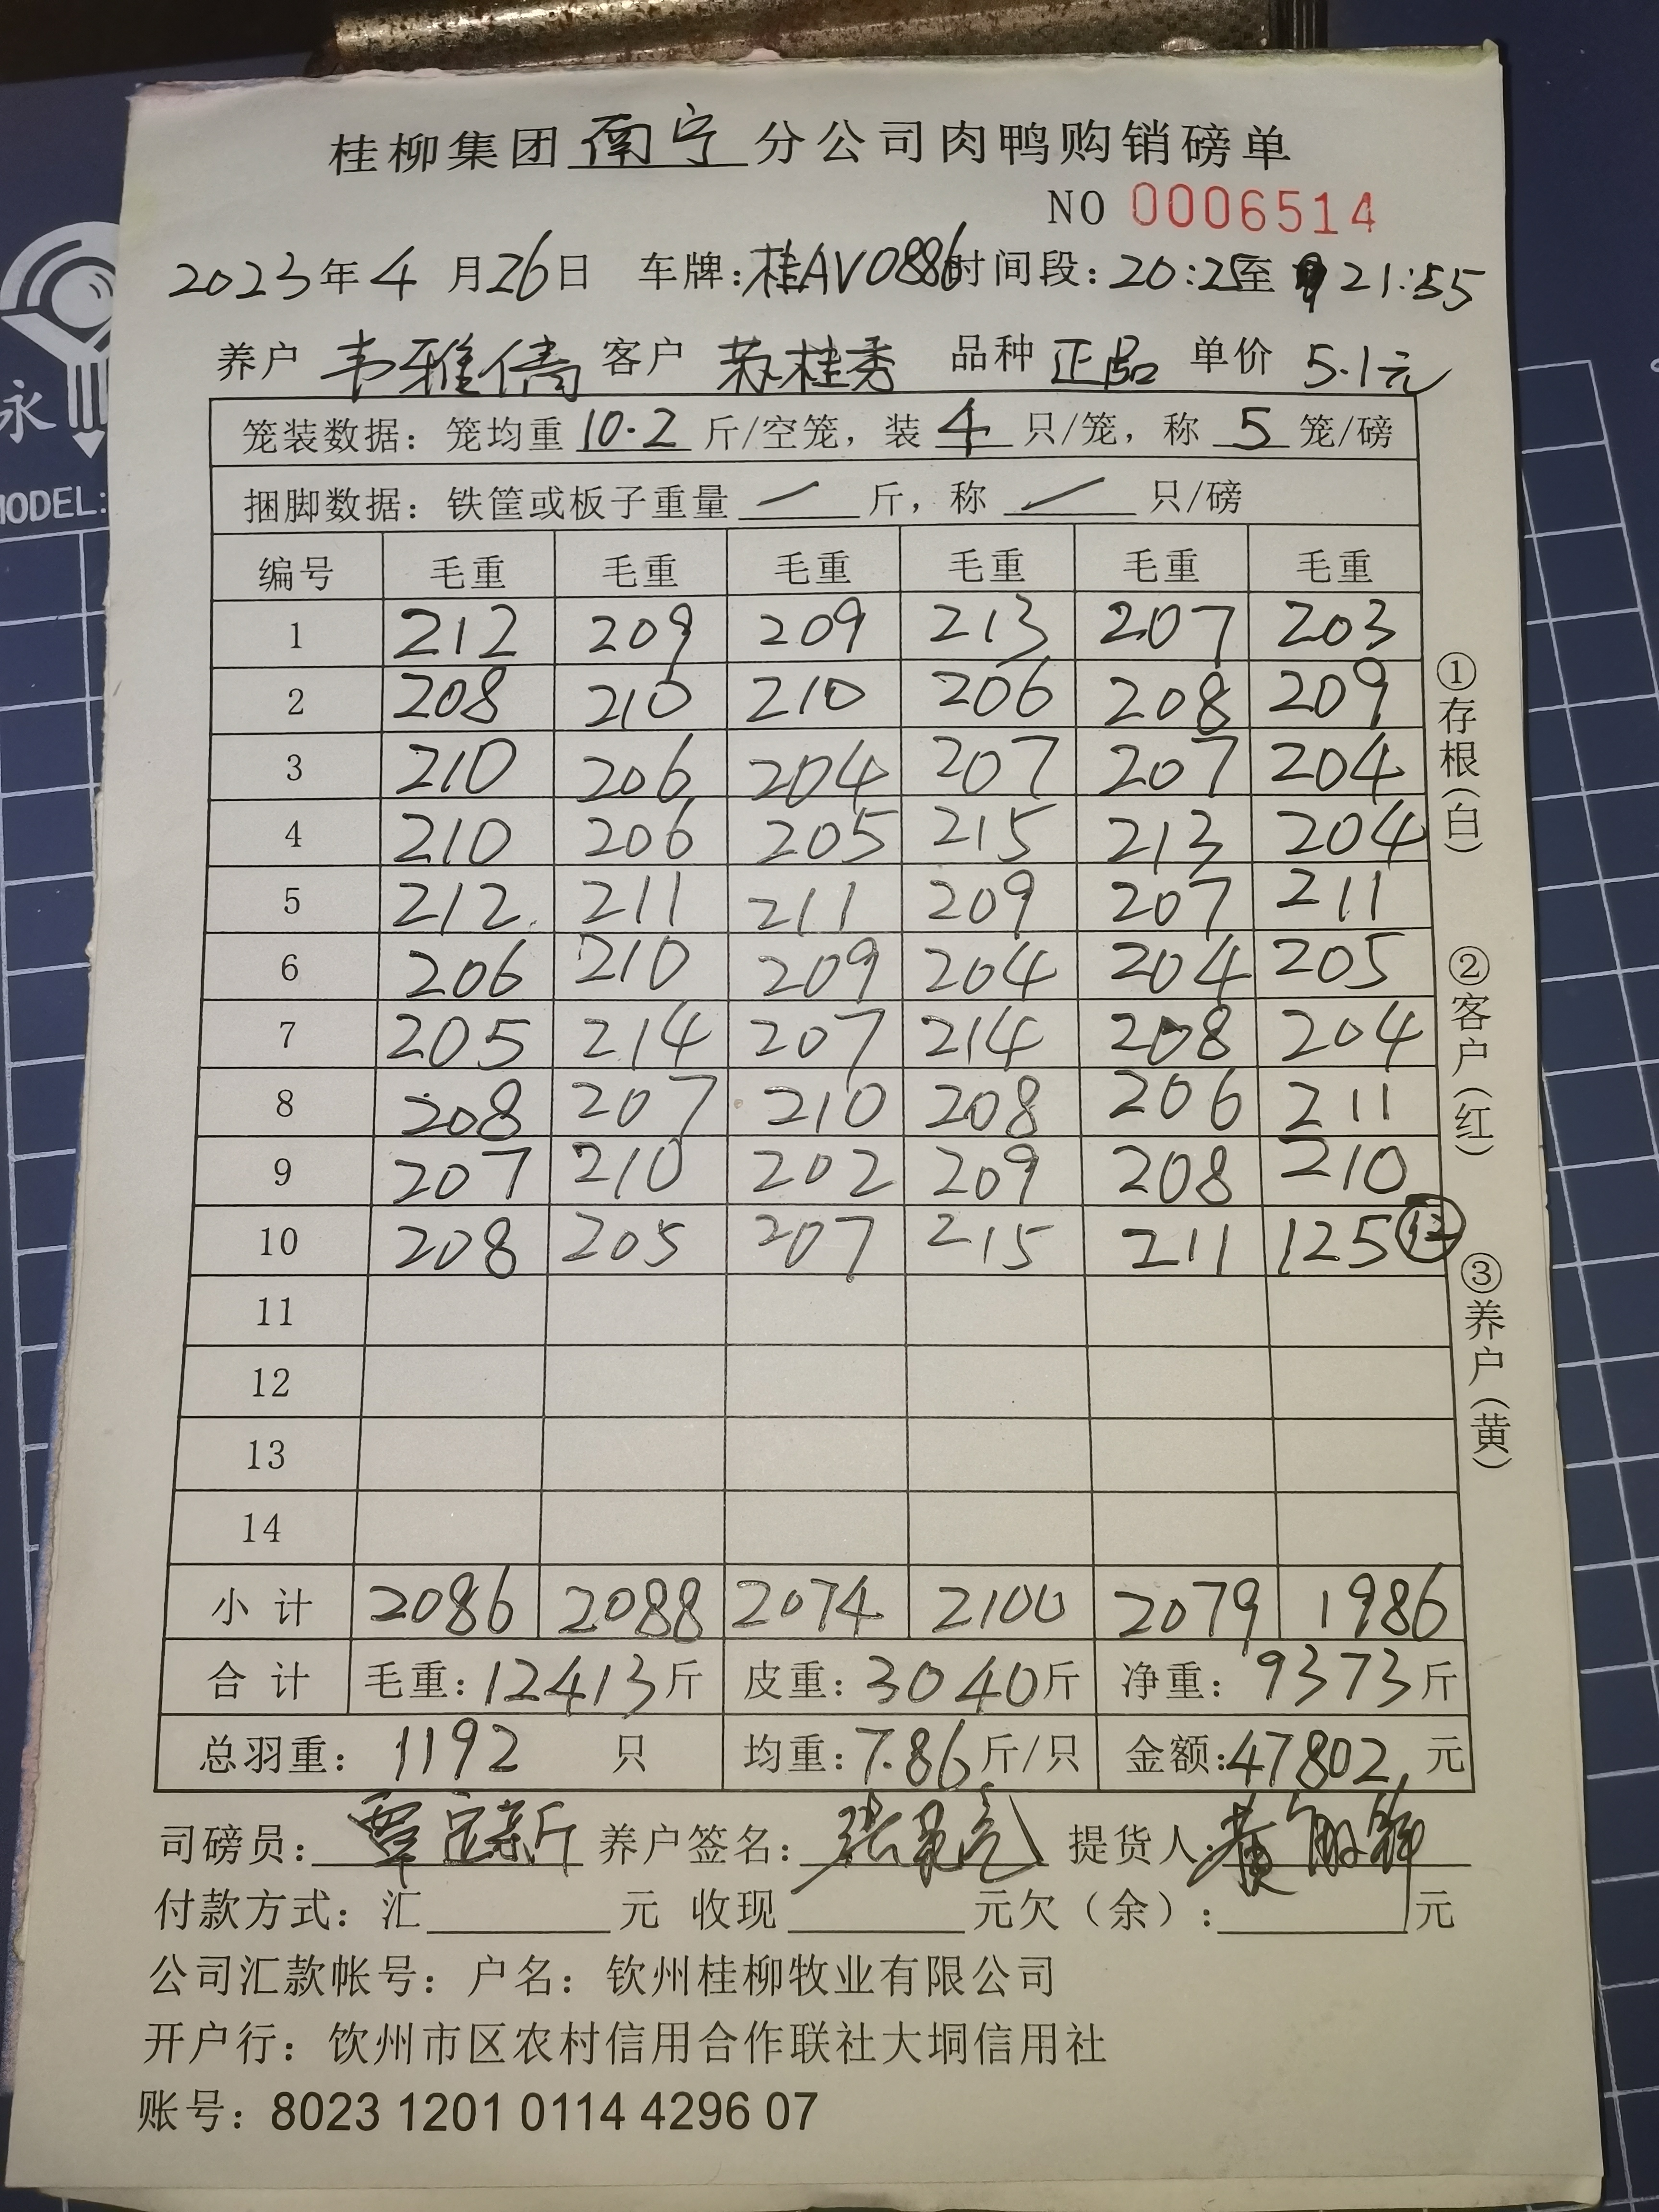 桂柳集团南宁分公司肉鸭购销磅单
NO 0006514
2023年4月26日 车牌:桂AV0886时间段:20:25至21:55
养户 韦雅倩 客户 苏桂秀 品种 正品 单价 5.1元
笼装数据: 笼均重 10.2 斤/空笼, 装 4 只/笼, 称 5 笼/磅
捆脚数据: 铁筐或板子重量 / 斤, 称 / 只/磅
编号 毛重 毛重 毛重 毛重 毛重 毛重
1 212 209 209 213 207 203
2 208 210 210 206 208 209
3 210 206 204 207 207 204
4 210 206 205 215 213 204
5 212 211 211 209 207 211
6 206 210 209 204 204 205
7 205 214 207 214 208 204
8 208 207 210 208 206 211
9 207 210 202 209 208 210
10 208 205 207 215 211 125 ⑫
11
12
13
14
小计 2086 2088 2074 2100 2079 1986
合计 毛重:12413斤 皮重:3040斤 净重:9373斤
总羽重: 1192 只 均重:7.86斤/只 金额:47802元
司磅员: 覃定新 养户签名: 提货人: 黄
付款方式: 汇 元 收现 元欠(余): 元
公司汇款帐号: 户名: 钦州桂柳牧业有限公司
开户行: 饮州市区农村信用合作联社大垌信用社
账号: 8023 1201 0114 4296 07
①存根(白)
②客户(红)
③养户(黄)
永
MODEL: